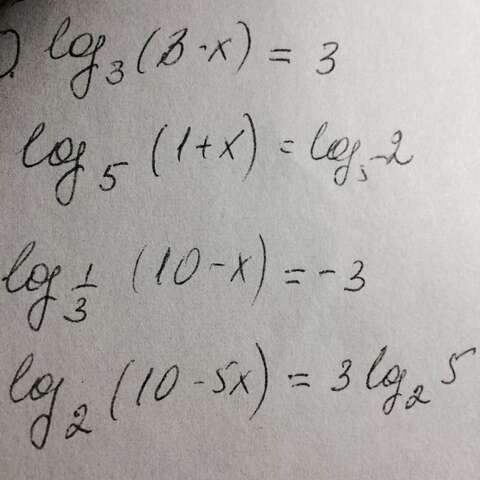 ). log₃(3-x) = 3
log₅(1+x) = log₅-2
log 1/3 (10-x) = -3
log₂(10-5x) = 3log₂5